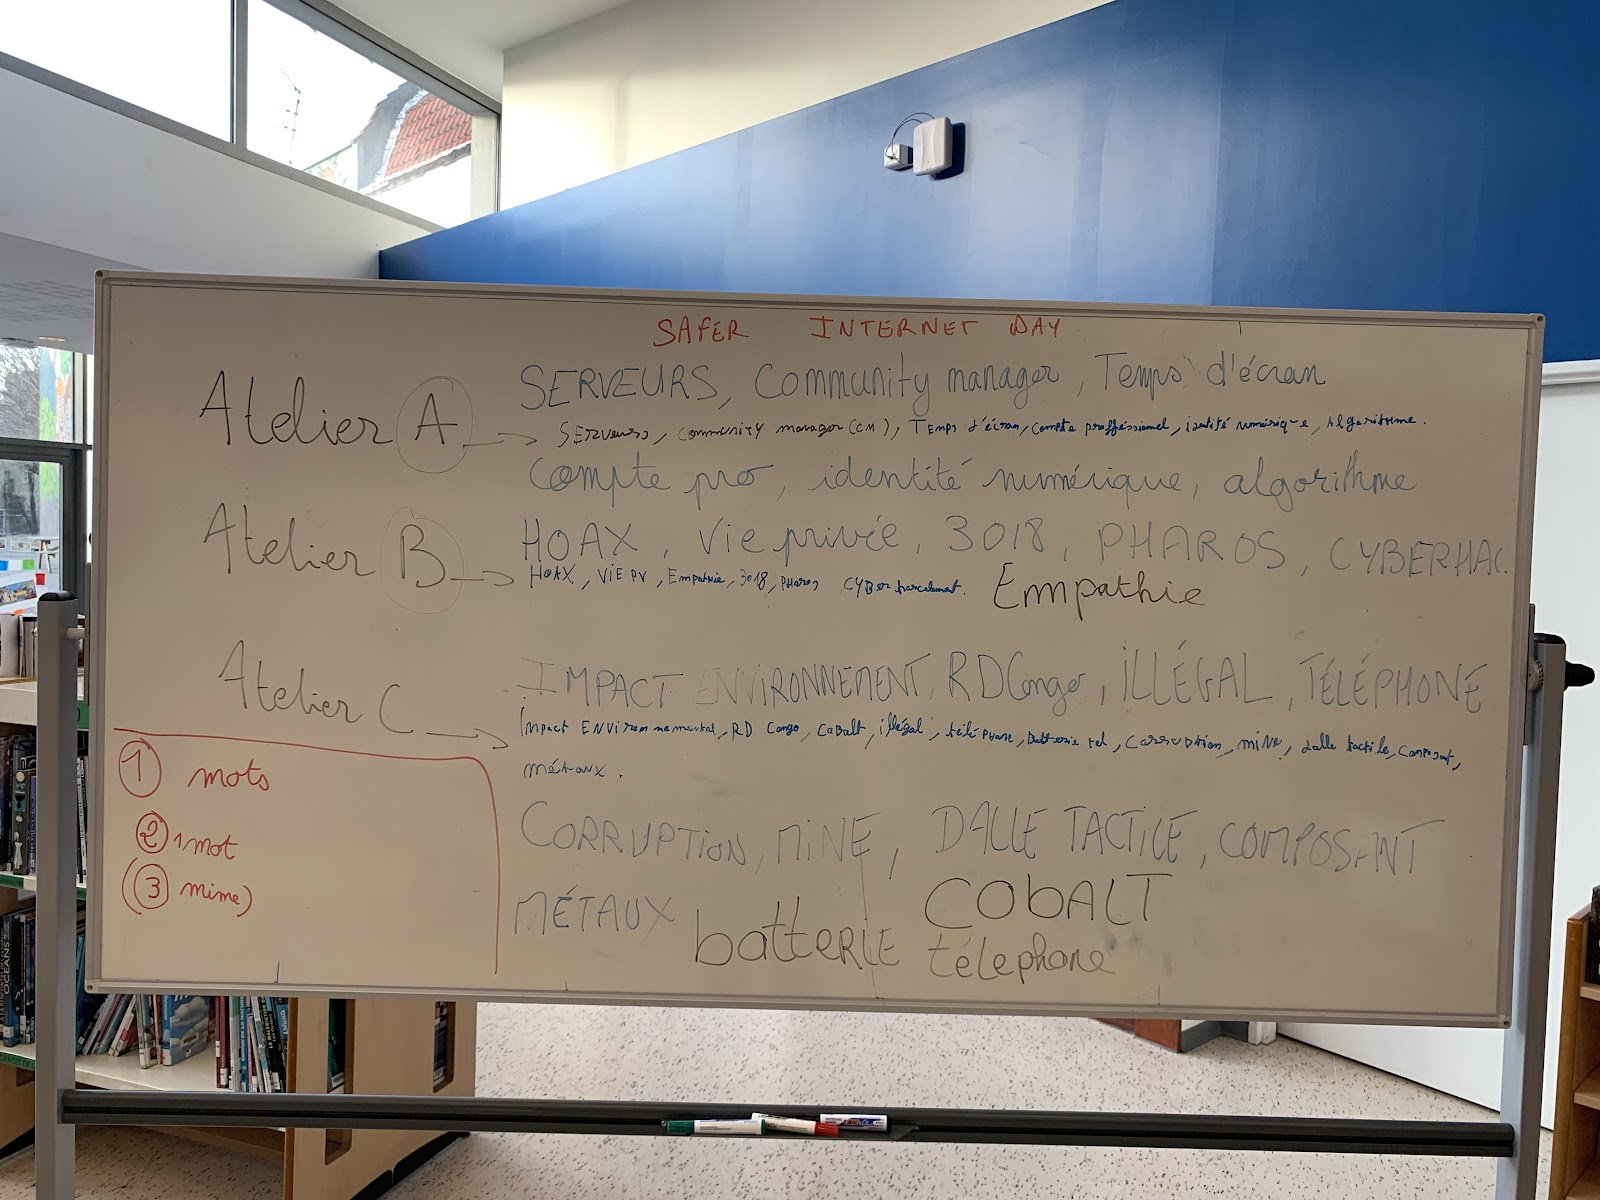 SAFER INTERNET DAY
Atelier A
SERVEURS, Community manager, Temps d'écran
Serveurs, community manager (CM), Temps d'écran, compte proffessionnel, identité numérique, Algorithme.
compte pro, identité numérique, algorithme
Atelier B
HOAX, Vie privée, 3018, PHAROS, CYBERHAC.
HOAX, VIE PV, Empathie, 3018, PHAROS CYBerharcelement.
Empathie
Atelier C
IMPACT ENVIRONNEMENT, RDCongo, ILLÉGAL, TÉLÉPHONE
Impact ENVIRonnemental, RD Congo, Cobalt, illégal, téléphone, Batterie tel, Corruption, mine, dalle tactile, Composant,
métaux.
CORRUPTION, MINE, DALLE TACTILE, COMPOSANT
MÉTAUX
COBALT
batterie téléphone
1 mots
2 1 mot
(3 mime)
OCEANS